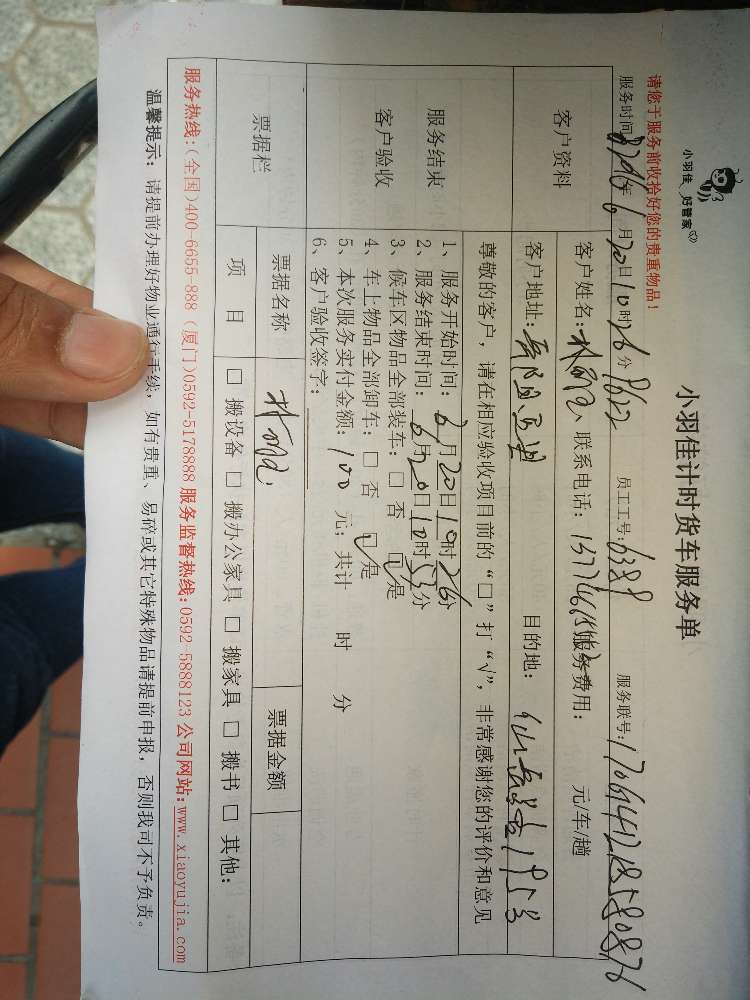 小羽佳 好管家
小羽佳计时货车服务单
请您于服务前收拾好您的贵重物品!
服务时间: 年 6 月 20 日 10 时 26 分 员工工号: 6388 服务联号:
客户资料
客户姓名: 联系电话: 服务费用: 元/车/趟
客户地址: 目的地:
服务结束
客户验收
尊敬的客户, 请在相应验收项目前的“□”打“√”, 非常感谢您的评价和意见
1、服务开始时间: 6月20日10时26分
2、服务结束时间: 6月20日10时53分
3、候车区物品全部装车: □ 否 ☑ 是
4、车上物品全部卸车: □ 否 ☑ 是
5、本次服务实付金额: 100 元; 共计 时 分
6、客户验收签字:
票据栏
票据名称 票据金额
项 目 □ 搬设备 □ 搬办公家具 □ 搬家具 □ 搬书 □ 其他:
服务热线:(全国)400-6655-888 (厦门)0592-5178888 服务监督热线:0592-5888123 公司网站:www.xiaoyujia.com
温馨提示: 请提前办理好物业通行手续, 如有贵重、易碎或其它特殊物品请提前申报, 否则我司不予负责。